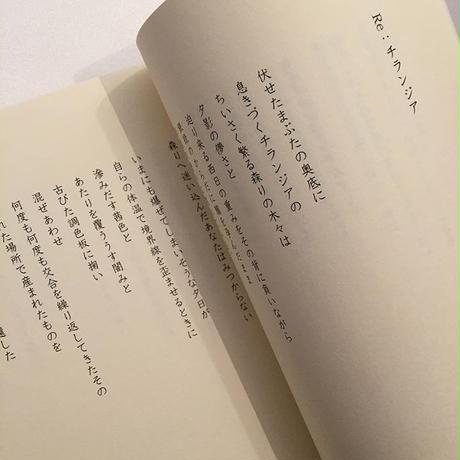 Re:チランジア
伏せたまぶたの奥底に
息きづくチランジアの
ちいさく繁る森りの木々は
夕影の儚さと
迫り来る西日の重みをその背に負いながら
森りへ迷い込んだあなたはみつからない
いまにも爆ぜてしまいそうな夕日が
自らの体温で境界線を歪ませるときに
滲みだす茜色と
あたりを覆ううす闇みと
古びた調色板に掬い
混ぜあわせ
何度も何度も交合を繰り返してきたその
れた場所で産まれたものを